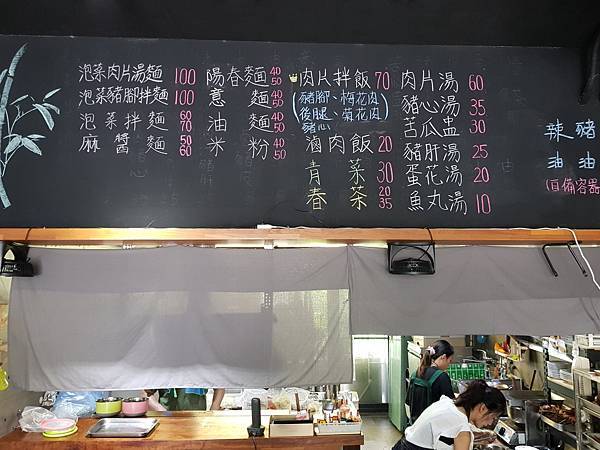 泡菜肉片湯麵 100
泡菜豬腳拌麵 100
泡菜拌麵 60 70
麻醬麵 50 60
陽春麵 40 50
意麵 40 50
油麵 40 50
米粉 40 50
肉片拌飯 70
(豬腳、梅花肉
後腿、菊花肉
豬心)
滷肉飯 20
青菜 30
春茶 20 35
肉片湯 60
豬心湯 35
苦瓜盅 30
豬肝湯 25
蛋花湯 20
魚丸湯 10
辣豬
油油
(自備容器